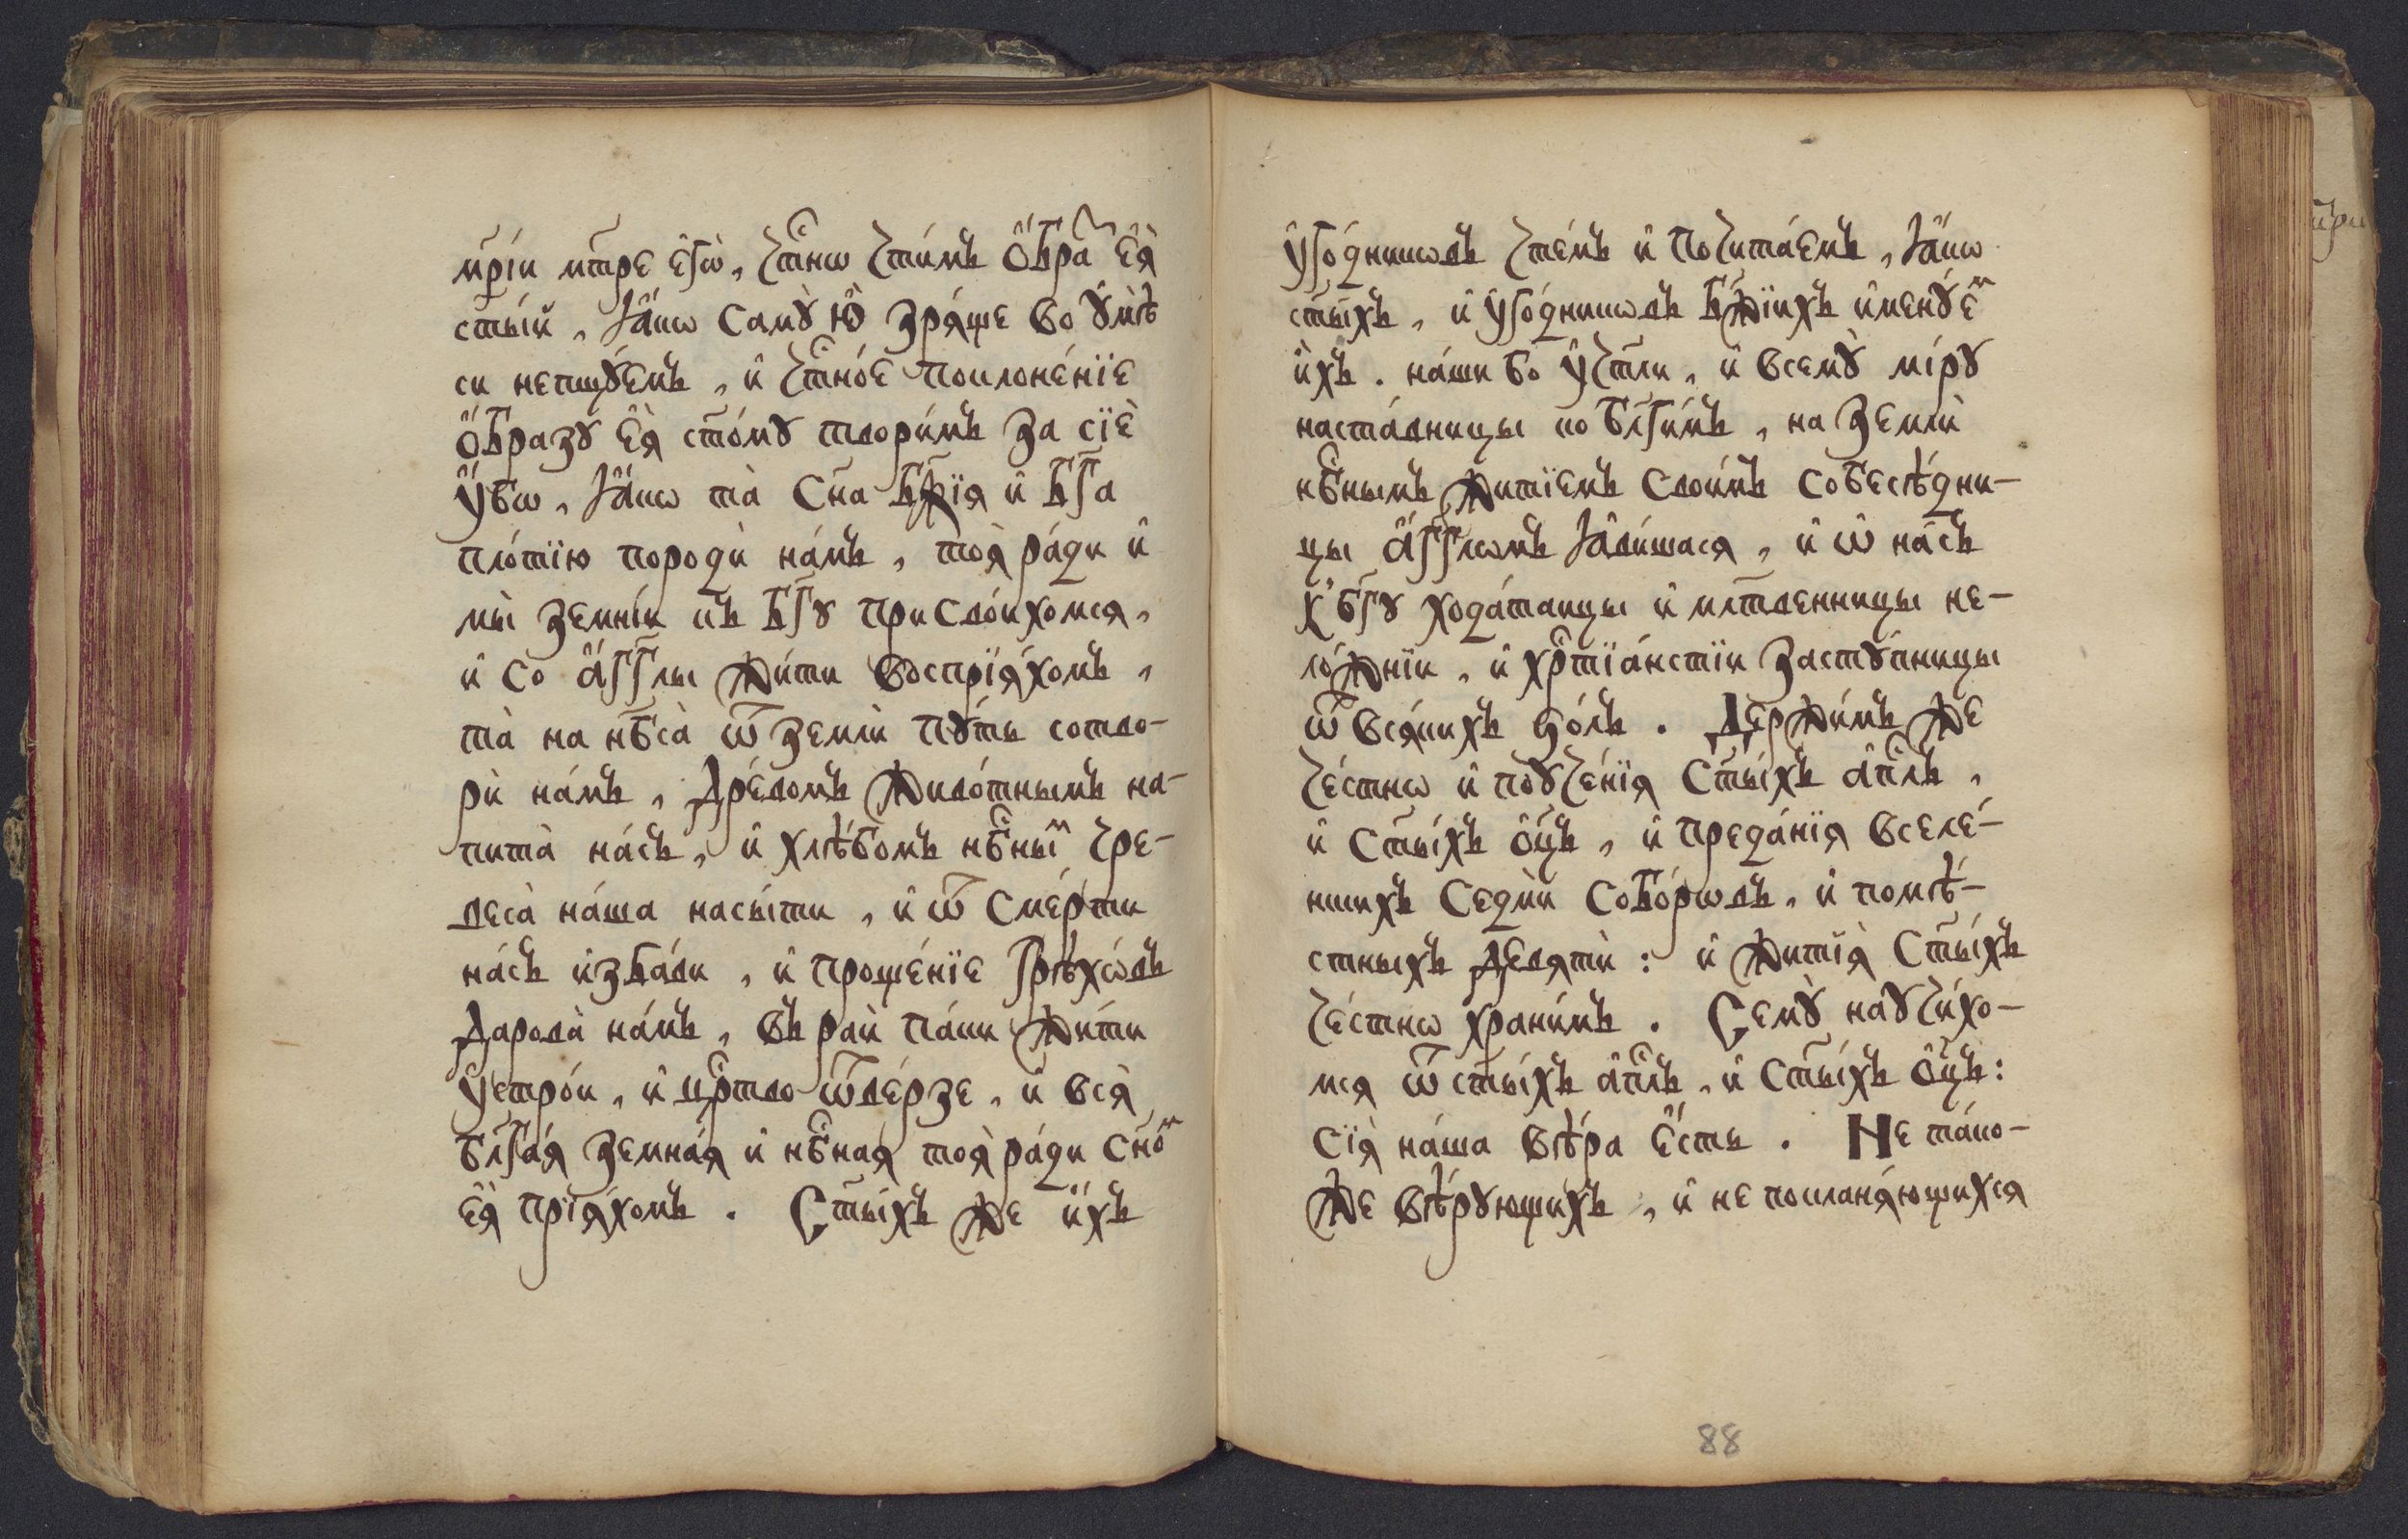 мр҃іи мт҃ре є҆гѡ̀, чⷭ҇тнѡ чти́мъ ѻ҆́браⷥ є҆ѧ̀
ст҃ы́й, ꙗ҆́кѡ самꙋ̀ ю҆̀ зрѧ́ще во ᲂу҆мѣ̀
си непщꙋ́емъ, и҆ чⷭ҇тно́е поклоне́нїе
ѻ҆́бразꙋ є҆ѧ̀ ст҃о́мꙋ твори́мъ за сїѐ
ᲂу҆́бѡ, ꙗ҆́кѡ та̀ сн҃а бж҃їѧ и҆ бг҃а
пло́тїю породѝ на́мъ, тоѧ̀ ра́ди и҆
мы̀ земні́и къ бг҃ꙋ присво́ихомсѧ,
и҆ со а҆́гг҃лы жи́ти воспрїѧ́хомъ,
та̀ на нб҃са̀ ѿ землѝ пꙋ́ть сотво-
рѝ на́мъ, дре́вомъ живо́тнымъ на-
пита̀ на́съ, и҆ хлѣ́бомъ нбⷭ҇ныⷨ чре-
веса̀ на́ша насы́ти, и҆ ѿ сме́рти
на́съ и҆зба́ви, и҆ проще́нїе грѣхѡ́въ
дарова̀ на́мъ, въ ра́й па́ки жи́ти
ᲂу҆стро́и, и҆ црⷭ҇тво ѿве́рзе, и҆ всѧ̀
бл҃га́ѧ земна́ѧ и҆ нбⷭ҇наѧ тоѧ̀ ра́ди сн҃оⷨ
є҆ѧ̀ прїѧ́хомъ. Ст҃ы́хъ же и҆́хъ
ᲂу҆го́дникѡвъ чте́мъ и҆ почита́емъ, ꙗ҆́кѡ
ст҃ы́хъ, и҆ ᲂу҆го́дникѡвъ бж҃їихъ и҆менꙋ́еⷨ
и҆̀хъ. на́ши бо ᲂу҆чт҃ли, и҆ всемꙋ̀ мі́рꙋ
наста́вницы ко бл҃ги́мъ, на землѝ
нбⷭ҇нымъ житїемъ свои́мъ собесѣ́дни-
цы а҆́гг҃лѡмъ ꙗ҆ви́шасѧ, и҆ ѡ҆ на́съ
к̾ бг҃ꙋ хода́таицы и҆ млт҃венницы не-
ло́жнїи, и҆ хрⷭ҇тїа́нстїи застꙋ́пницы
ѿ всѧ́кихъ ѕо́лъ. Держи́мъ же
че́стнѡ и҆ поꙋче́нїѧ ст҃ы́хъ а҆пⷭ҇лъ,
и҆ ст҃ы́хъ ѻ҆ц҃ъ, и҆ преда́нїѧ вселе́-
нскихъ седмѝ собо́рѡвъ, и҆ помѣ́-
стныхъ девѧтѝ: и҆ житїѧ̀ ст҃ы́хъ
че́стнѡ храни́мъ. Семꙋ̀ наꙋчи́хо-
мсѧ ѿ ст҃ы́хъ а҆пⷭ҇лъ, и҆ ст҃ы́хъ ѻ҆ц҃ъ:
сїѧ̀ на́ша вѣ́ра є҆́сть. Не та́ко-
же вѣ́рꙋющихъ, и҆ не покланѧ́ющихсѧ
88